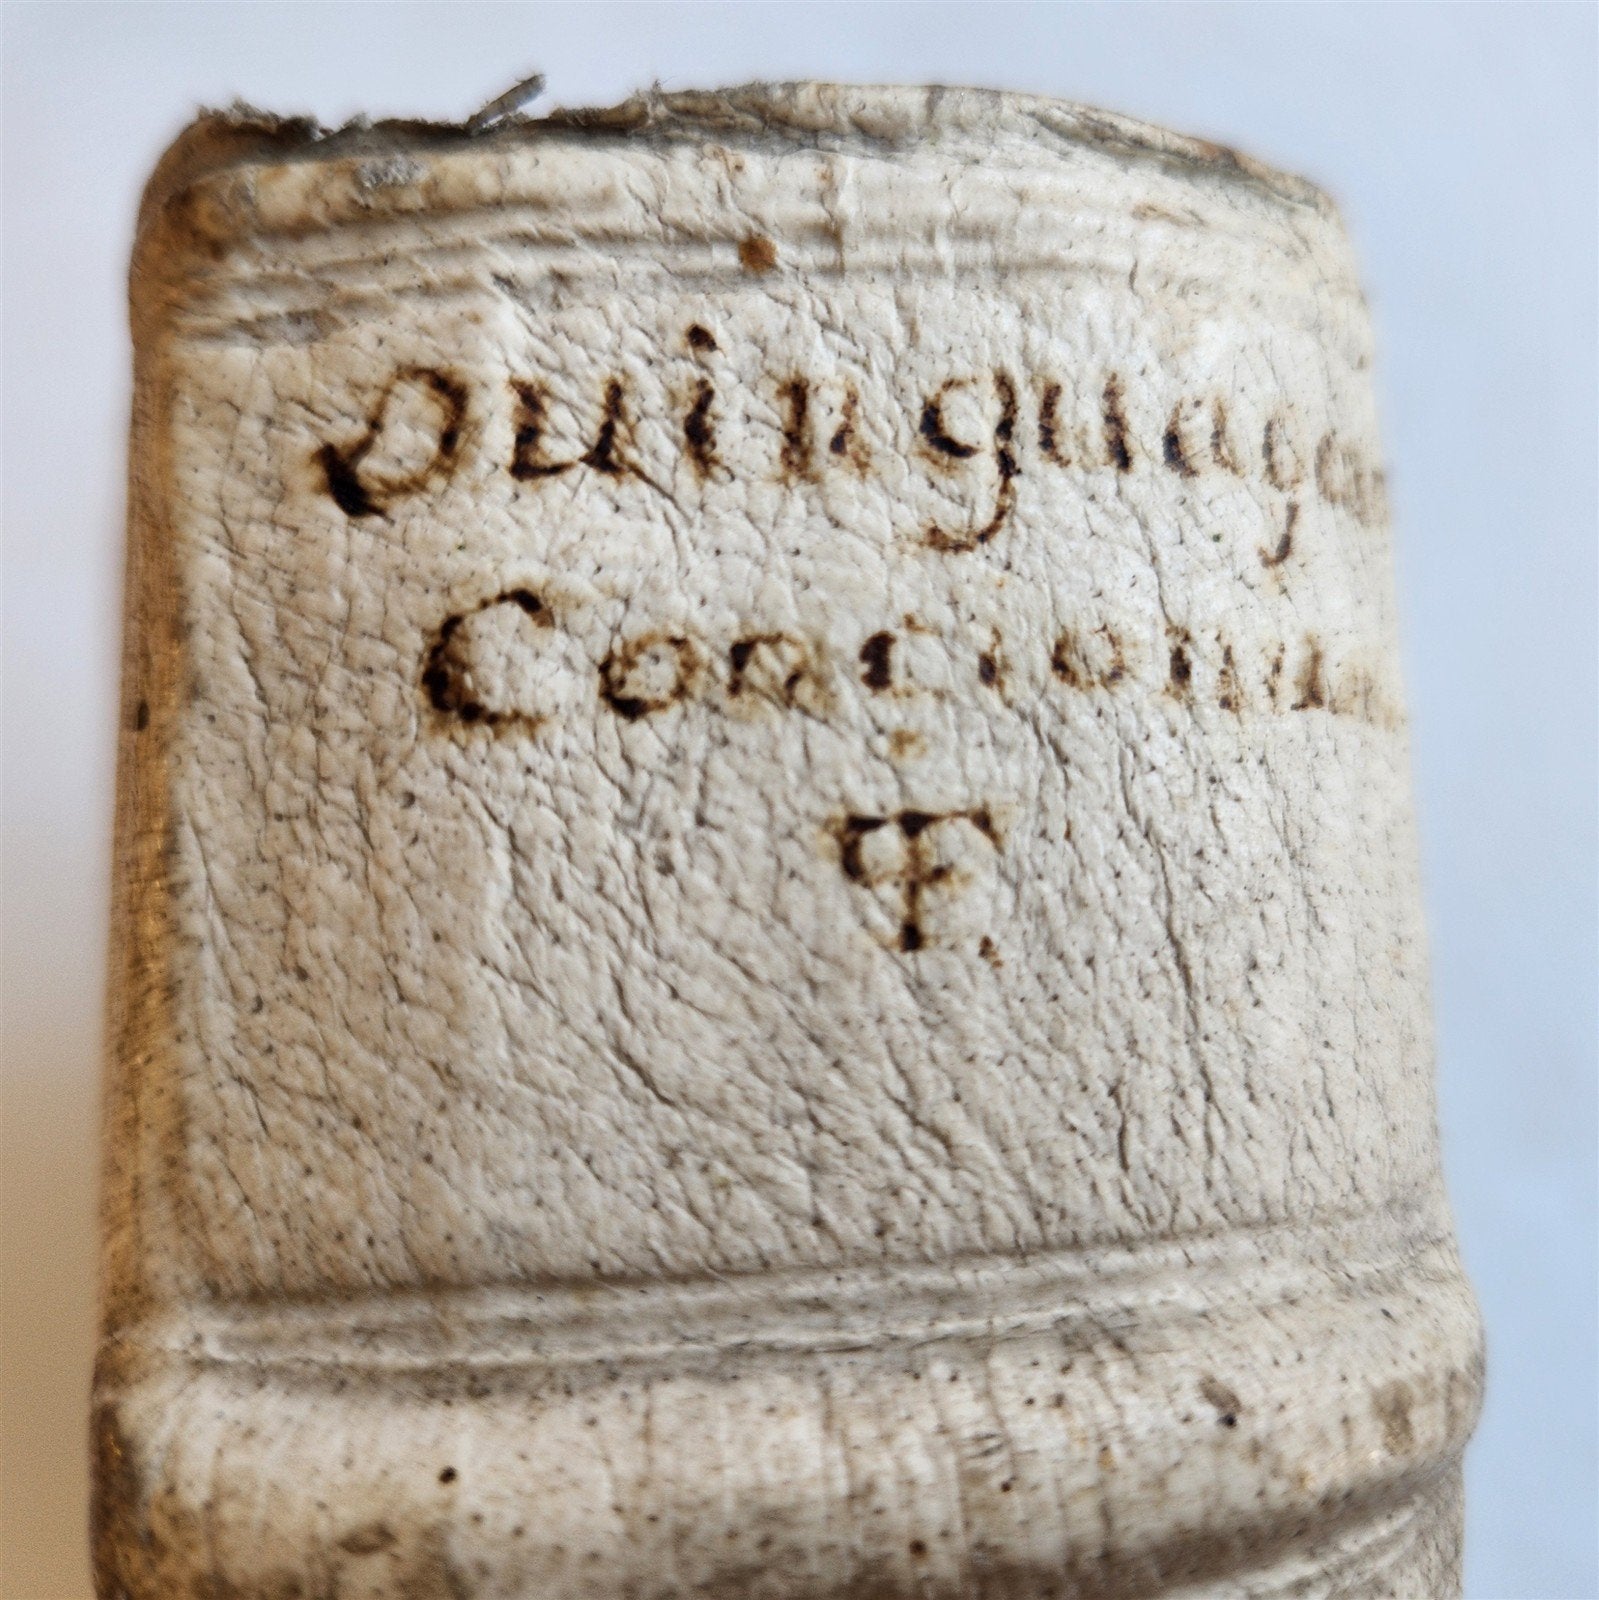 Quinguagen
Concioni
T.